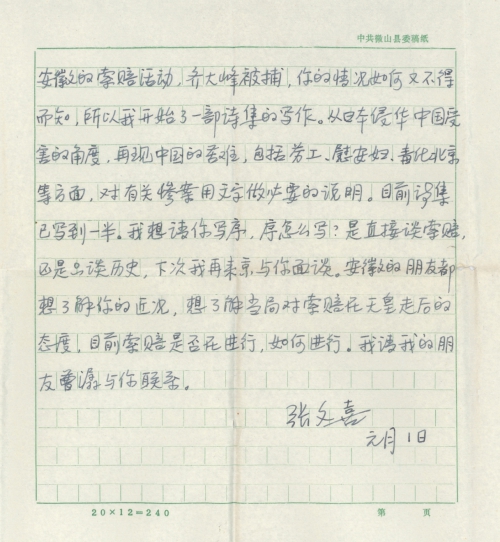 中共萧山县委稿纸
安徽的索赔活动，齐大峰被捕，你的情况如何又不得
而知，所以我开始了一部诗集的写作。从日本侵华中国受
害的角度，再现中国的苦难，包括劳工、慰安妇、毒化北京
等方面，对有关惨案用文字做必要的说明。目前诗集
已写到一半。我想请你写序，序怎么写？是直接谈索赔，
还是只谈历史，下次我再来京与你面谈。安徽的朋友都
想了解你的近况，想了解当局对索赔在天皇走后的
态度，目前索赔是否在进行，如何进行。我请我的朋
友曹潺与你联系。
张文喜
元月1日
20×12=240 第 页